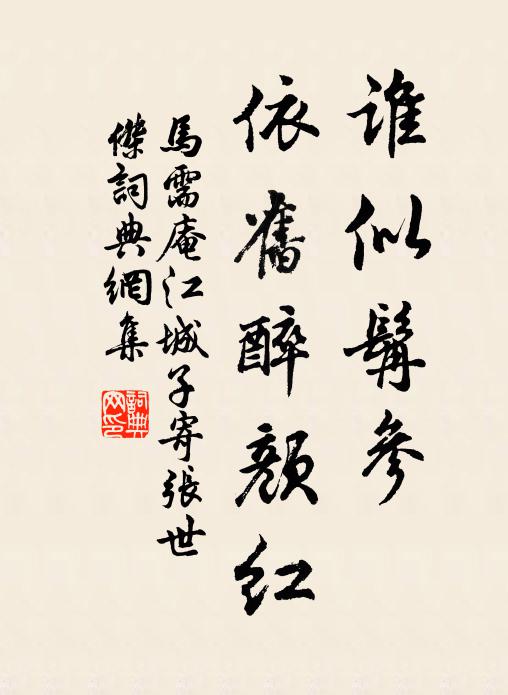 誰似鬅參
依舊醉顏紅
馬需庵江城子寄張世
傑詞典網集
詞典网印